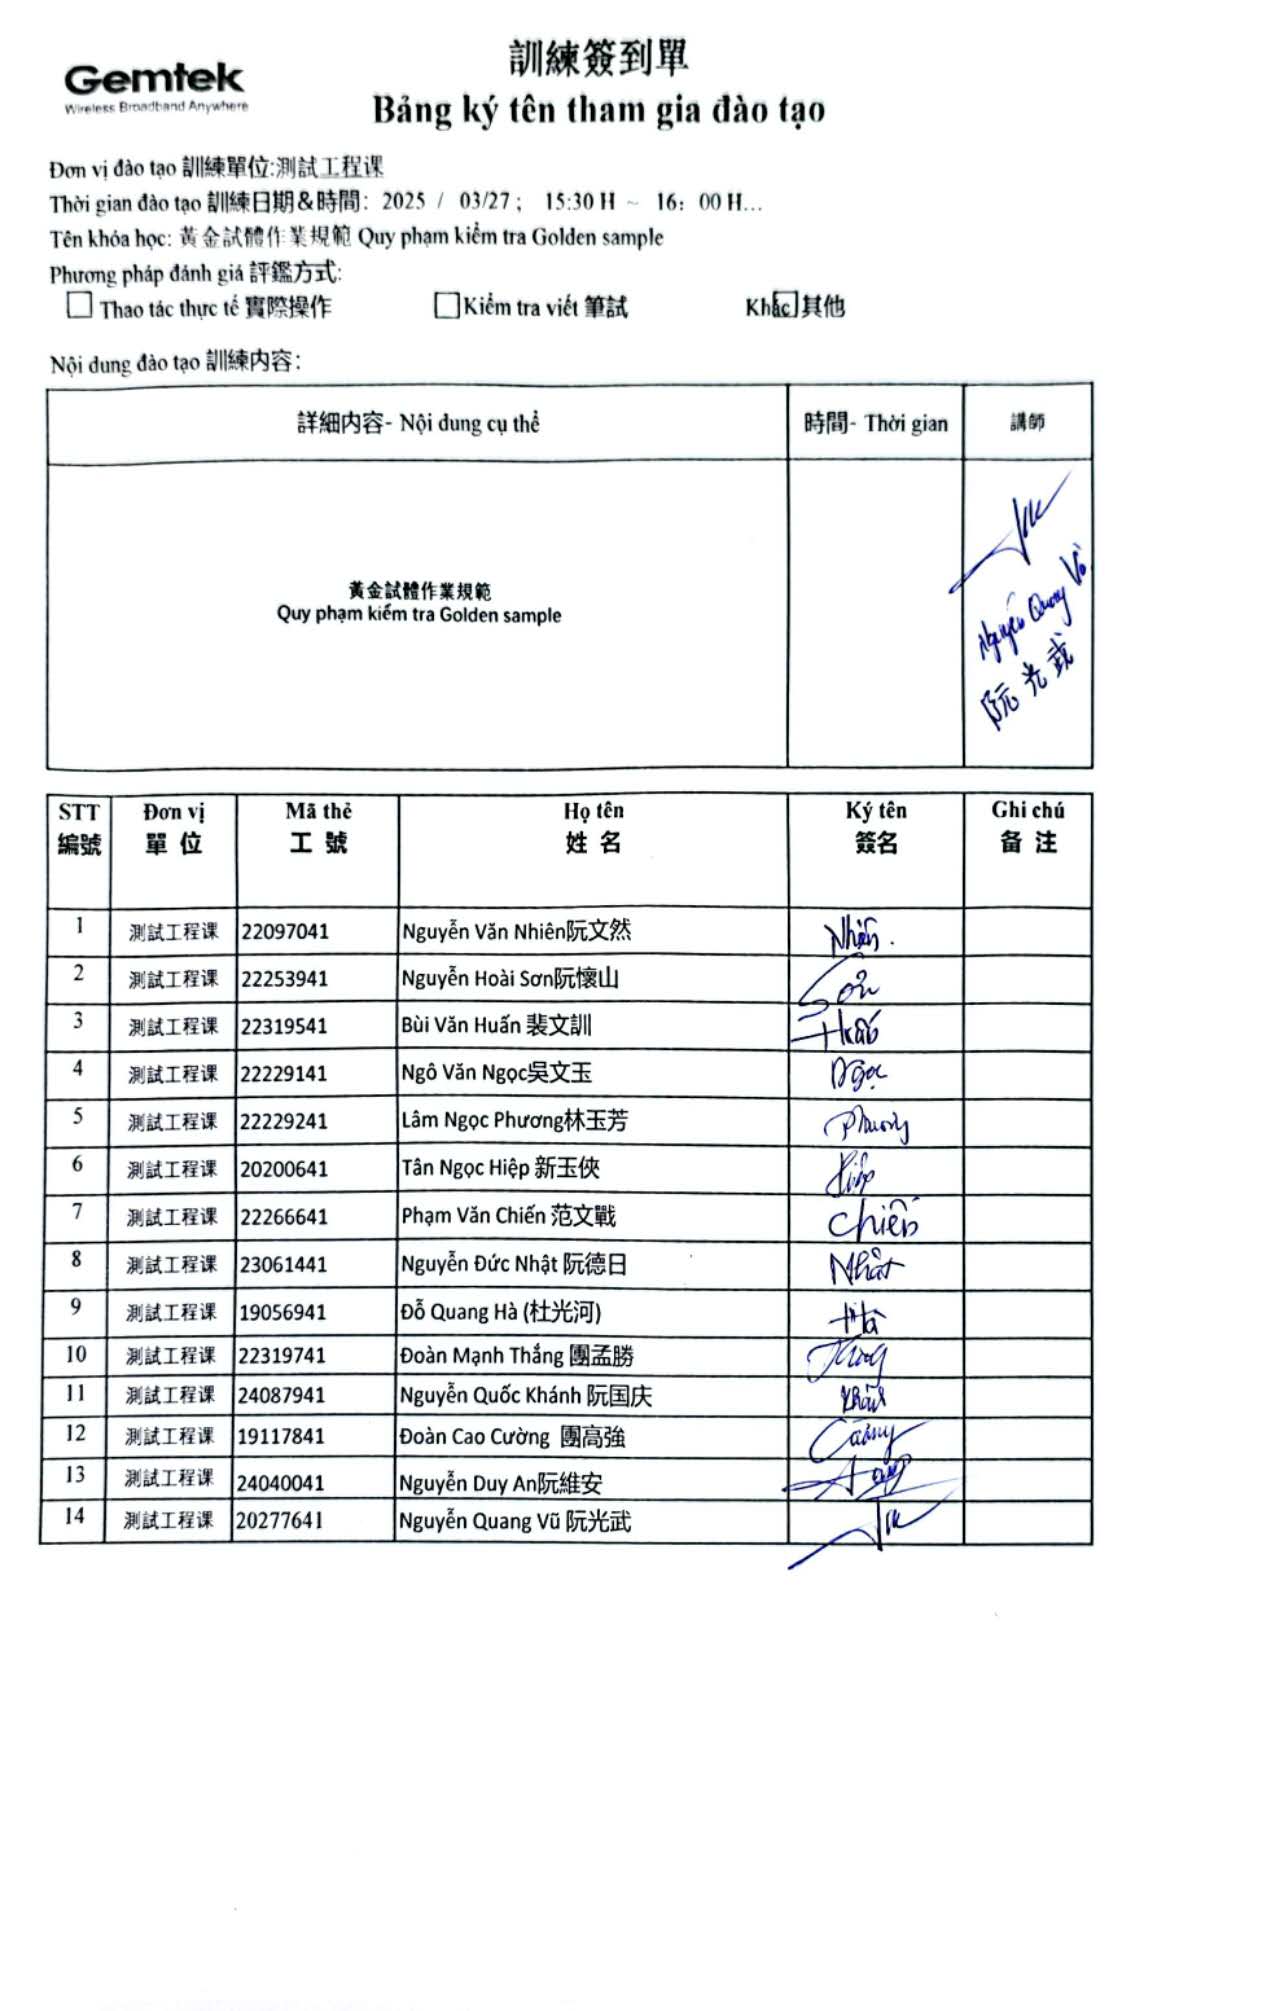 Gemtek
Wireless Broadband Anywhere
訓練簽到單
Bảng ký tên tham gia đào tạo
Đơn vị đào tạo 訓練單位:測試工程课
Thời gian đào tạo 訓練日期&時間: 2025 / 03/27 ; 15:30 H ~ 16: 00 H...
Tên khóa học: 黃金試體作業規範 Quy phạm kiểm tra Golden sample
Phương pháp đánh giá 評鑑方式:
Thao tác thực tế 實際操作 Kiểm tra viết 筆試 Khác 其他
Nội dung đào tạo 訓練内容:
詳細內容- Nội dung cụ thể 時間- Thời gian 講師
黃金試體作業規範
Quy phạm kiểm tra Golden sample
Nguyễn Quang Vũ
阮光武
STT Đơn vị Mã thẻ Họ tên Ký tên Ghi chú
编號 單 位 工 號 姓 名 簽名 备 注
1 測試工程课 22097041 Nguyễn Văn Nhiên阮文然 Nhiên
2 測試工程课 22253941 Nguyễn Hoài Sơn阮懷山 Sơn
3 測試工程课 22319541 Bùi Văn Huấn 裴文訓 Huấn
4 測試工程课 22229141 Ngô Văn Ngọc吳文玉 Ngọc
5 測試工程课 22229241 Lâm Ngọc Phương林玉芳 Phương
6 測試工程课 20200641 Tân Ngọc Hiệp 新玉俠 Hiệp
7 測試工程课 22266641 Phạm Văn Chiến 范文戰 Chiến
8 測試工程课 23061441 Nguyễn Đức Nhật 阮德日 Nhật
9 測試工程课 19056941 Đỗ Quang Hà (杜光河) Hà
10 測試工程课 22319741 Đoàn Mạnh Thắng 團孟勝
11 測試工程课 24087941 Nguyễn Quốc Khánh 阮国庆 Khánh
12 測試工程课 19117841 Đoàn Cao Cường 團高強 Cường
13 測試工程课 24040041 Nguyễn Duy An阮維安
14 測試工程课 20277641 Nguyễn Quang Vũ 阮光武